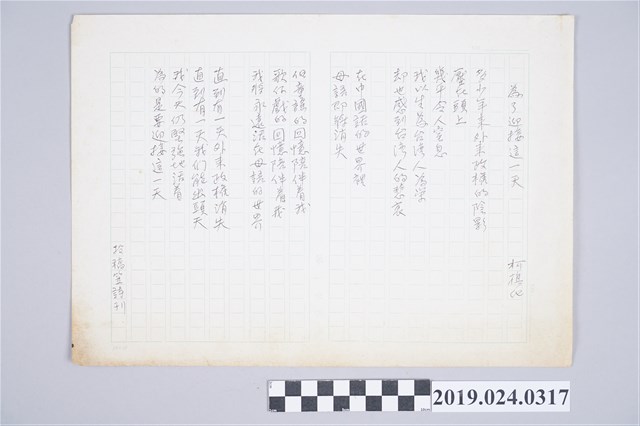 為了迎接這一天
柯旗化
多少年來外來政權的陰影
壓在頭上
幾乎令人窒息
我以生為台湾人為榮
却也感到台湾人的悲哀
在中國話的世界裡
母語即將消失
但童謠的回憶陪伴着我
歌仔戲的回憶陪伴着我
我將永遠活在母語的世界
直到有一天外來政權消失
直到有一天我們能出頭天
我今天仍堅強地活着
為的是要迎接這一天
投稿笠詩刊
2019.024.0317